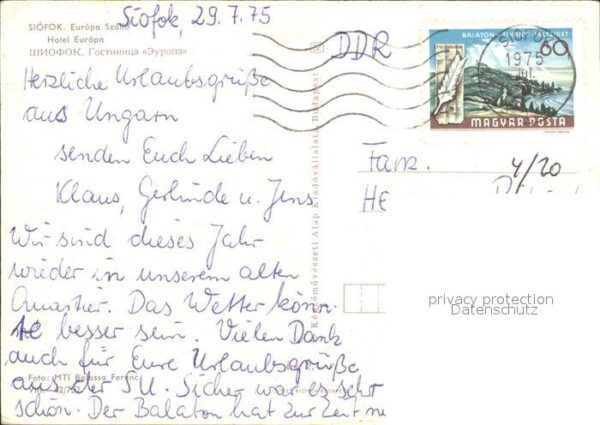 SIÓFOK. Európa Szálló
Hotel Európa
ШИОФОК. Гостиница «Эуропа»
Siófok, 29.7.75
Herzliche Urlaubsgrüße
aus Ungarn
senden Euch Lieben
Klaus, Gerlinde u. Jens
Wir sind dieses Jahr
wieder in unserem alten
Quartier. Das Wetter könn-
te besser sein. Vielen Dank
auch für Eure Urlaubsgrüße
aus der SU. Sicher war es sehr
schön. Der Balaton hat zur Zeit
Foto: MTI Balassa Ferenc
Képzőművészeti Alap Kiadóvállalata, Budapest
DDR
BALATON
60
1975
MAGYAR POSTA
Fam.
4/20
HE
privacy protection
Datenschutz